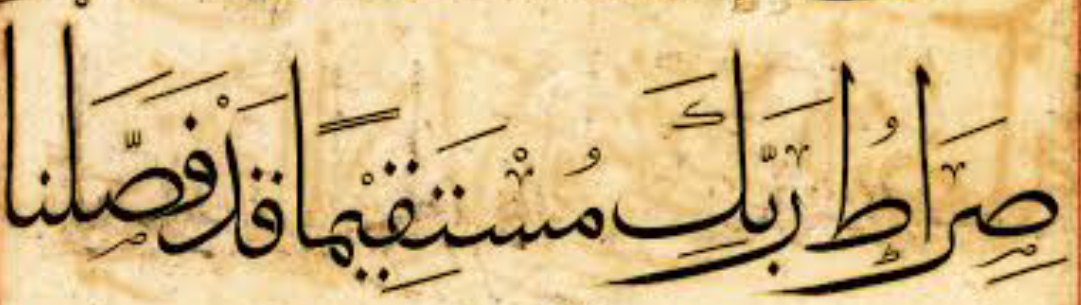 صِرَاطُ رَبِّكَ مُسْتَقِيمًا قَدْ فَصَّلْنَا